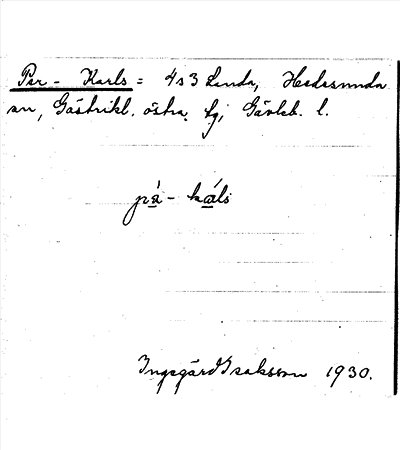 Per - Karls = 4 s 3 Lunda, Hedesunda
sn, Gästrikl. östra tg, Gävleb. l.
pà - káls
Ingegärd Isaksson 1930.